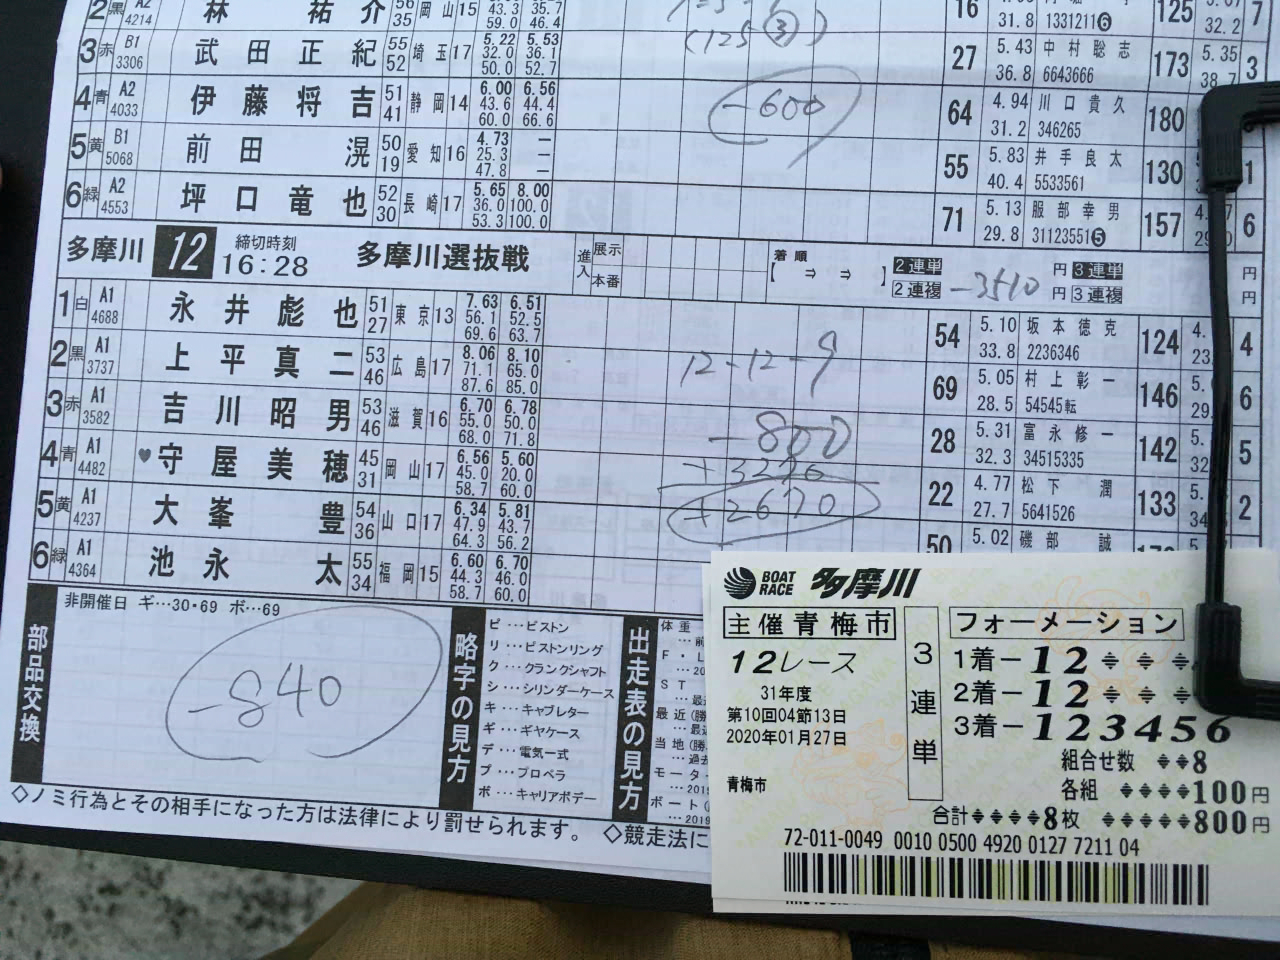 2 黒 A2 4214 林 祐介 56 35 岡山 15 43.3 59.0 35.7 46.4 16 31.8 1331211⑥ 125 32.2 7
(125 ③)
3 赤 B1 3306 武田正紀 55 52 埼玉 17 5.22 32.0 50.0 5.53 36.1 52.7 27 5.43 36.8 中村聡志 6643666 173 5.35 38.7 3
4 青 A2 4033 伊藤将吉 51 41 静岡 14 6.00 43.6 60.0 6.56 44.4 66.6 -600 64 4.94 31.2 川口貴久 346265 180
5 黄 B1 5068 前田 滉 50 19 愛知 16 4.73 25.3 47.8 — — — 55 5.83 40.4 井手良太 5533561 130 1
6 緑 A2 4553 坪口竜也 52 30 長崎 17 5.65 36.0 53.3 8.00 100.0 100.0 71 5.13 29.8 服部幸男 31123551⑤ 157 6
多摩川 12 締切時刻 16:28 多摩川選抜戦 進入 展示 本番 着順 【 ⇒ ⇒ 】 2連単 2連複 -3510 円 円 3連単 3連複 円 円
1 白 A1 4688 永井彪也 51 27 東京 13 7.63 56.1 69.6 6.51 52.5 63.7 54 5.10 33.8 坂本徳克 2236346 124 4. 23. 4
2 黒 A1 3737 上平真二 53 46 広島 17 8.06 71.1 87.6 8.10 65.0 85.0 12-12-9 69 5.05 28.5 村上彰一 54545転 146 5. 29. 6
3 赤 A1 3582 吉川昭男 53 46 滋賀 16 6.70 55.0 68.0 6.78 50.0 71.8 -800 28 5.31 32.3 富永修一 34515335 142 5. 32 5
4 青 A1 4482 ♥守屋美穂 45 31 岡山 17 6.56 45.0 58.7 5.60 20.0 60.0 22 4.77 27.7 松下 潤 5641526 133 5. 34. 2
5 黄 A1 4237 大峯 豊 54 36 山口 17 6.34 47.9 64.3 5.81 43.7 56.2 +2670 50 5.02 磯部 誠
6 緑 A1 4364 池永 太 55 34 福岡 15 6.60 44.3 58.7 6.70 46.0 60.0
部品交換
非開催日 ギ…30・69 ボ…69
-840
略字の見方
ピ…ピストン
リ…ピストンリング
ク…クランクシャフト
シ…シリンダーケース
キ…キャブレター
ギ…ギヤケース
デ…電気一式
プ…プロペラ
ボ…キャリアボデー
出走表の見方
体重
F・L
ST
最近(勝
当地(勝
モーター
ボート(
◇ノミ行為とその相手になった方は法律により罰せられます。 ◇競走法に
BOAT RACE 多摩川
主催青梅市
12レース
31年度
第10回04節13日
2020年01月27日
青梅市
3連単
フォーメーション
1着-12
2着-12
3着-123456
組合せ数 8
各組 100円
合計 8枚 800円
72-011-0049 0010 0500 4920 0127 7211 04